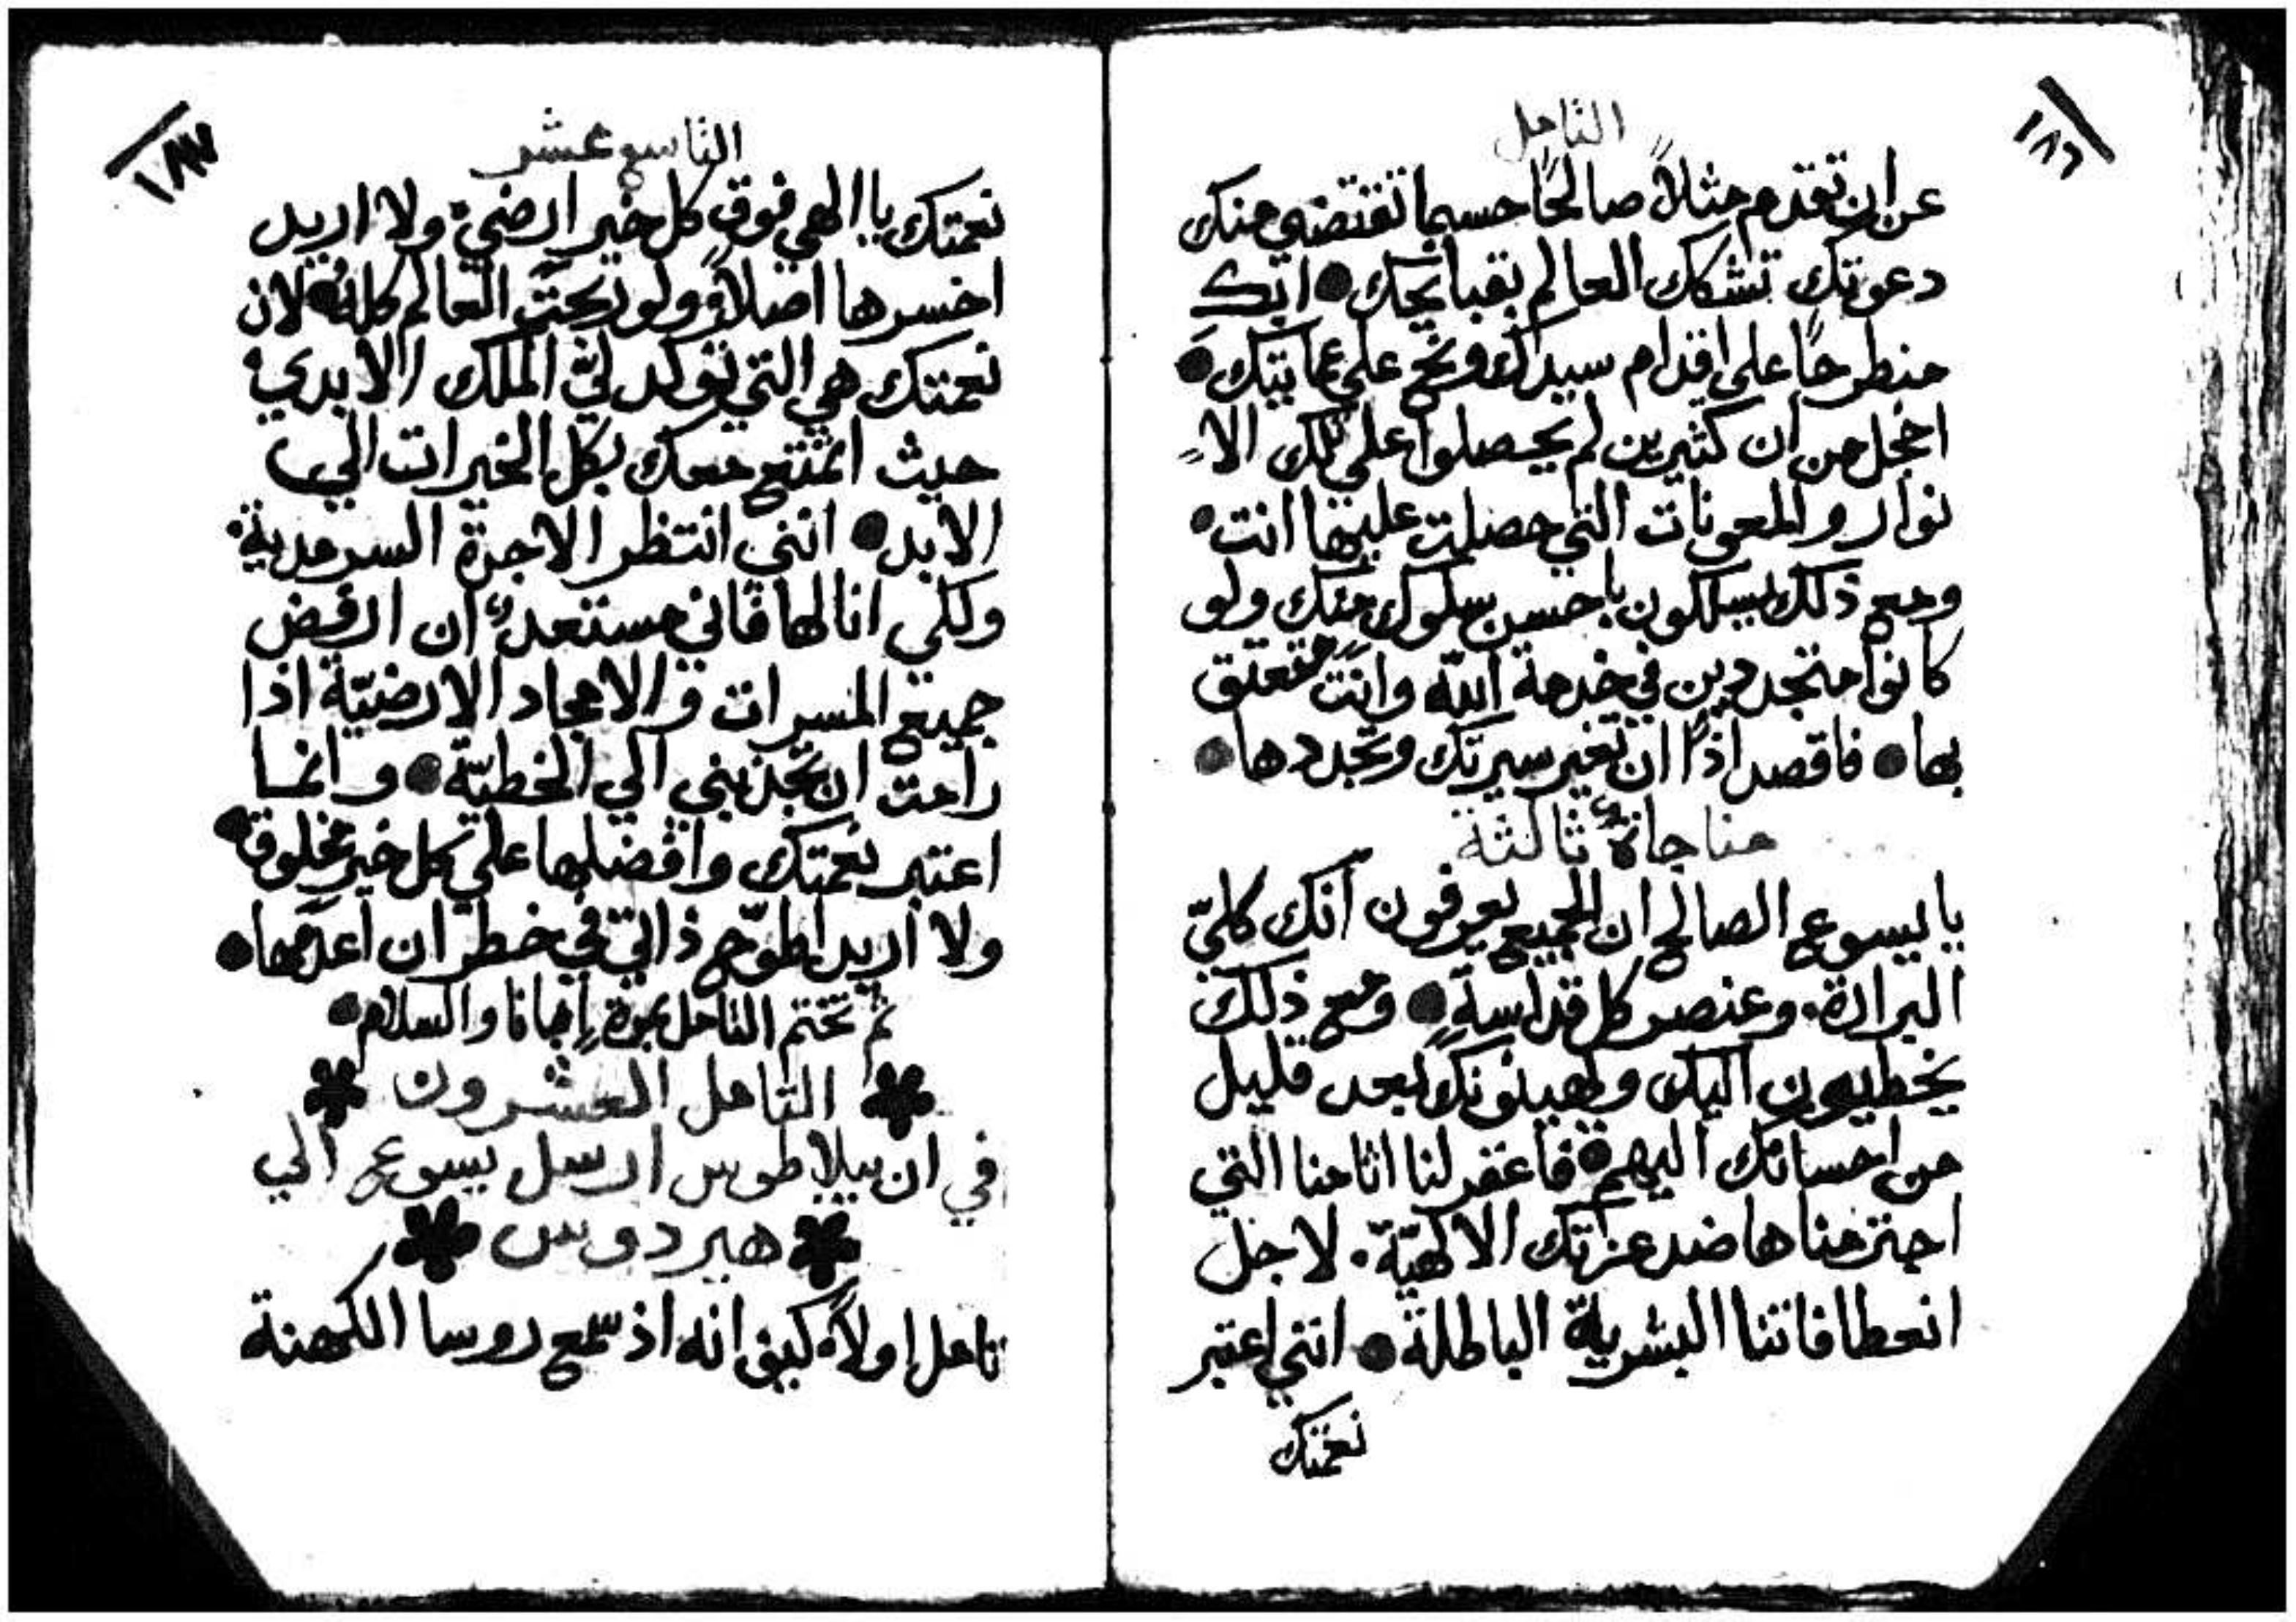 ١٨٦
التامل
عن ان تقدم مثلاً صالحًا حسبما تقتضي منك
دعوتك تشكك العالم بقبايحك • ابك
منطرحًا على اقدام سيدك ونح على عمايتك •
اخجل من ان كثيرين لم يحصلوا على تلك الا
نوار والمعونات التي حصلت عليها انت •
ومع ذلك يسلكون باحسن سلوك منك ولو
كانوا متجددين في خدمة الله وانت متعتق
بها • فاقصد اذًا ان تغير سيرتك وتجددها •
مناجاةٌ ثالثة
يا يسوع الصالح ان الجميع يعرفون انك كليّ
البرارة. وعنصر كل قداسةٍ • ومع ذلك
يخطيون اليك ويهينونك بعد قليل
من احسانك اليهم • فاغفر لنا اثامنا التي
اجترمناها ضد عزتك الالهيّة. لاجل
انعطافاتنا البشريّة الباطلة • انني اعتبر
نعمتك
١٨٧
التاسع عشر
نعمتك يا الهي فوق كل خير ارضي • ولا اريد
اخسرها اصلاً ولو ربحت العالم كله • لان
نعمتك هي التي توكد لي الملك الابدي •
حيث اتمتع معك بكل الخيرات الي
الابد • انني انتظر الاجرة السرمدية •
ولكي انالها فاني مستعدٌ ان ارفض
جميع المسرات والامجاد الارضيّة اذا
رامت ان تجذبني الي الخطيّة • وانما
اعتبر نعمتك وافضلها على كل خير مخلوق •
ولا اريد اطوّح ذاتي في خطر ان اعدمها •
ثم تختم التامل بمرة إبانا والسلام •
التامل العشرون
في ان بيلاطوس ارسل يسوع الي
هيردوس
تامل اولاً • كيف انه اذ سمع روسا الكهنة